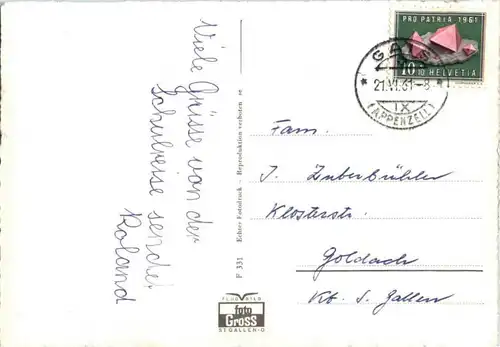 Viele Grüsse von der
Schulreise sendet
Roland
Echter Fotodruck - Reproduktion verboten
P 331
FLUGBILD
foto
Gross
ST GALLEN-O
PRO PATRIA 1961
10+10 HELVETIA
GAIS
21.VI.61-8
IX
(APPENZELL)
Fam.
J. Zuberbühler
Klosterstr.
Goldach
Kt. S. Gallen